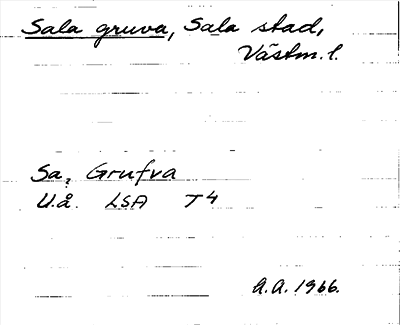 Sala gruva, Sala stad,
Västm. l.
Sa, Grufva
U.å. LSA T4
A.A. 1966.